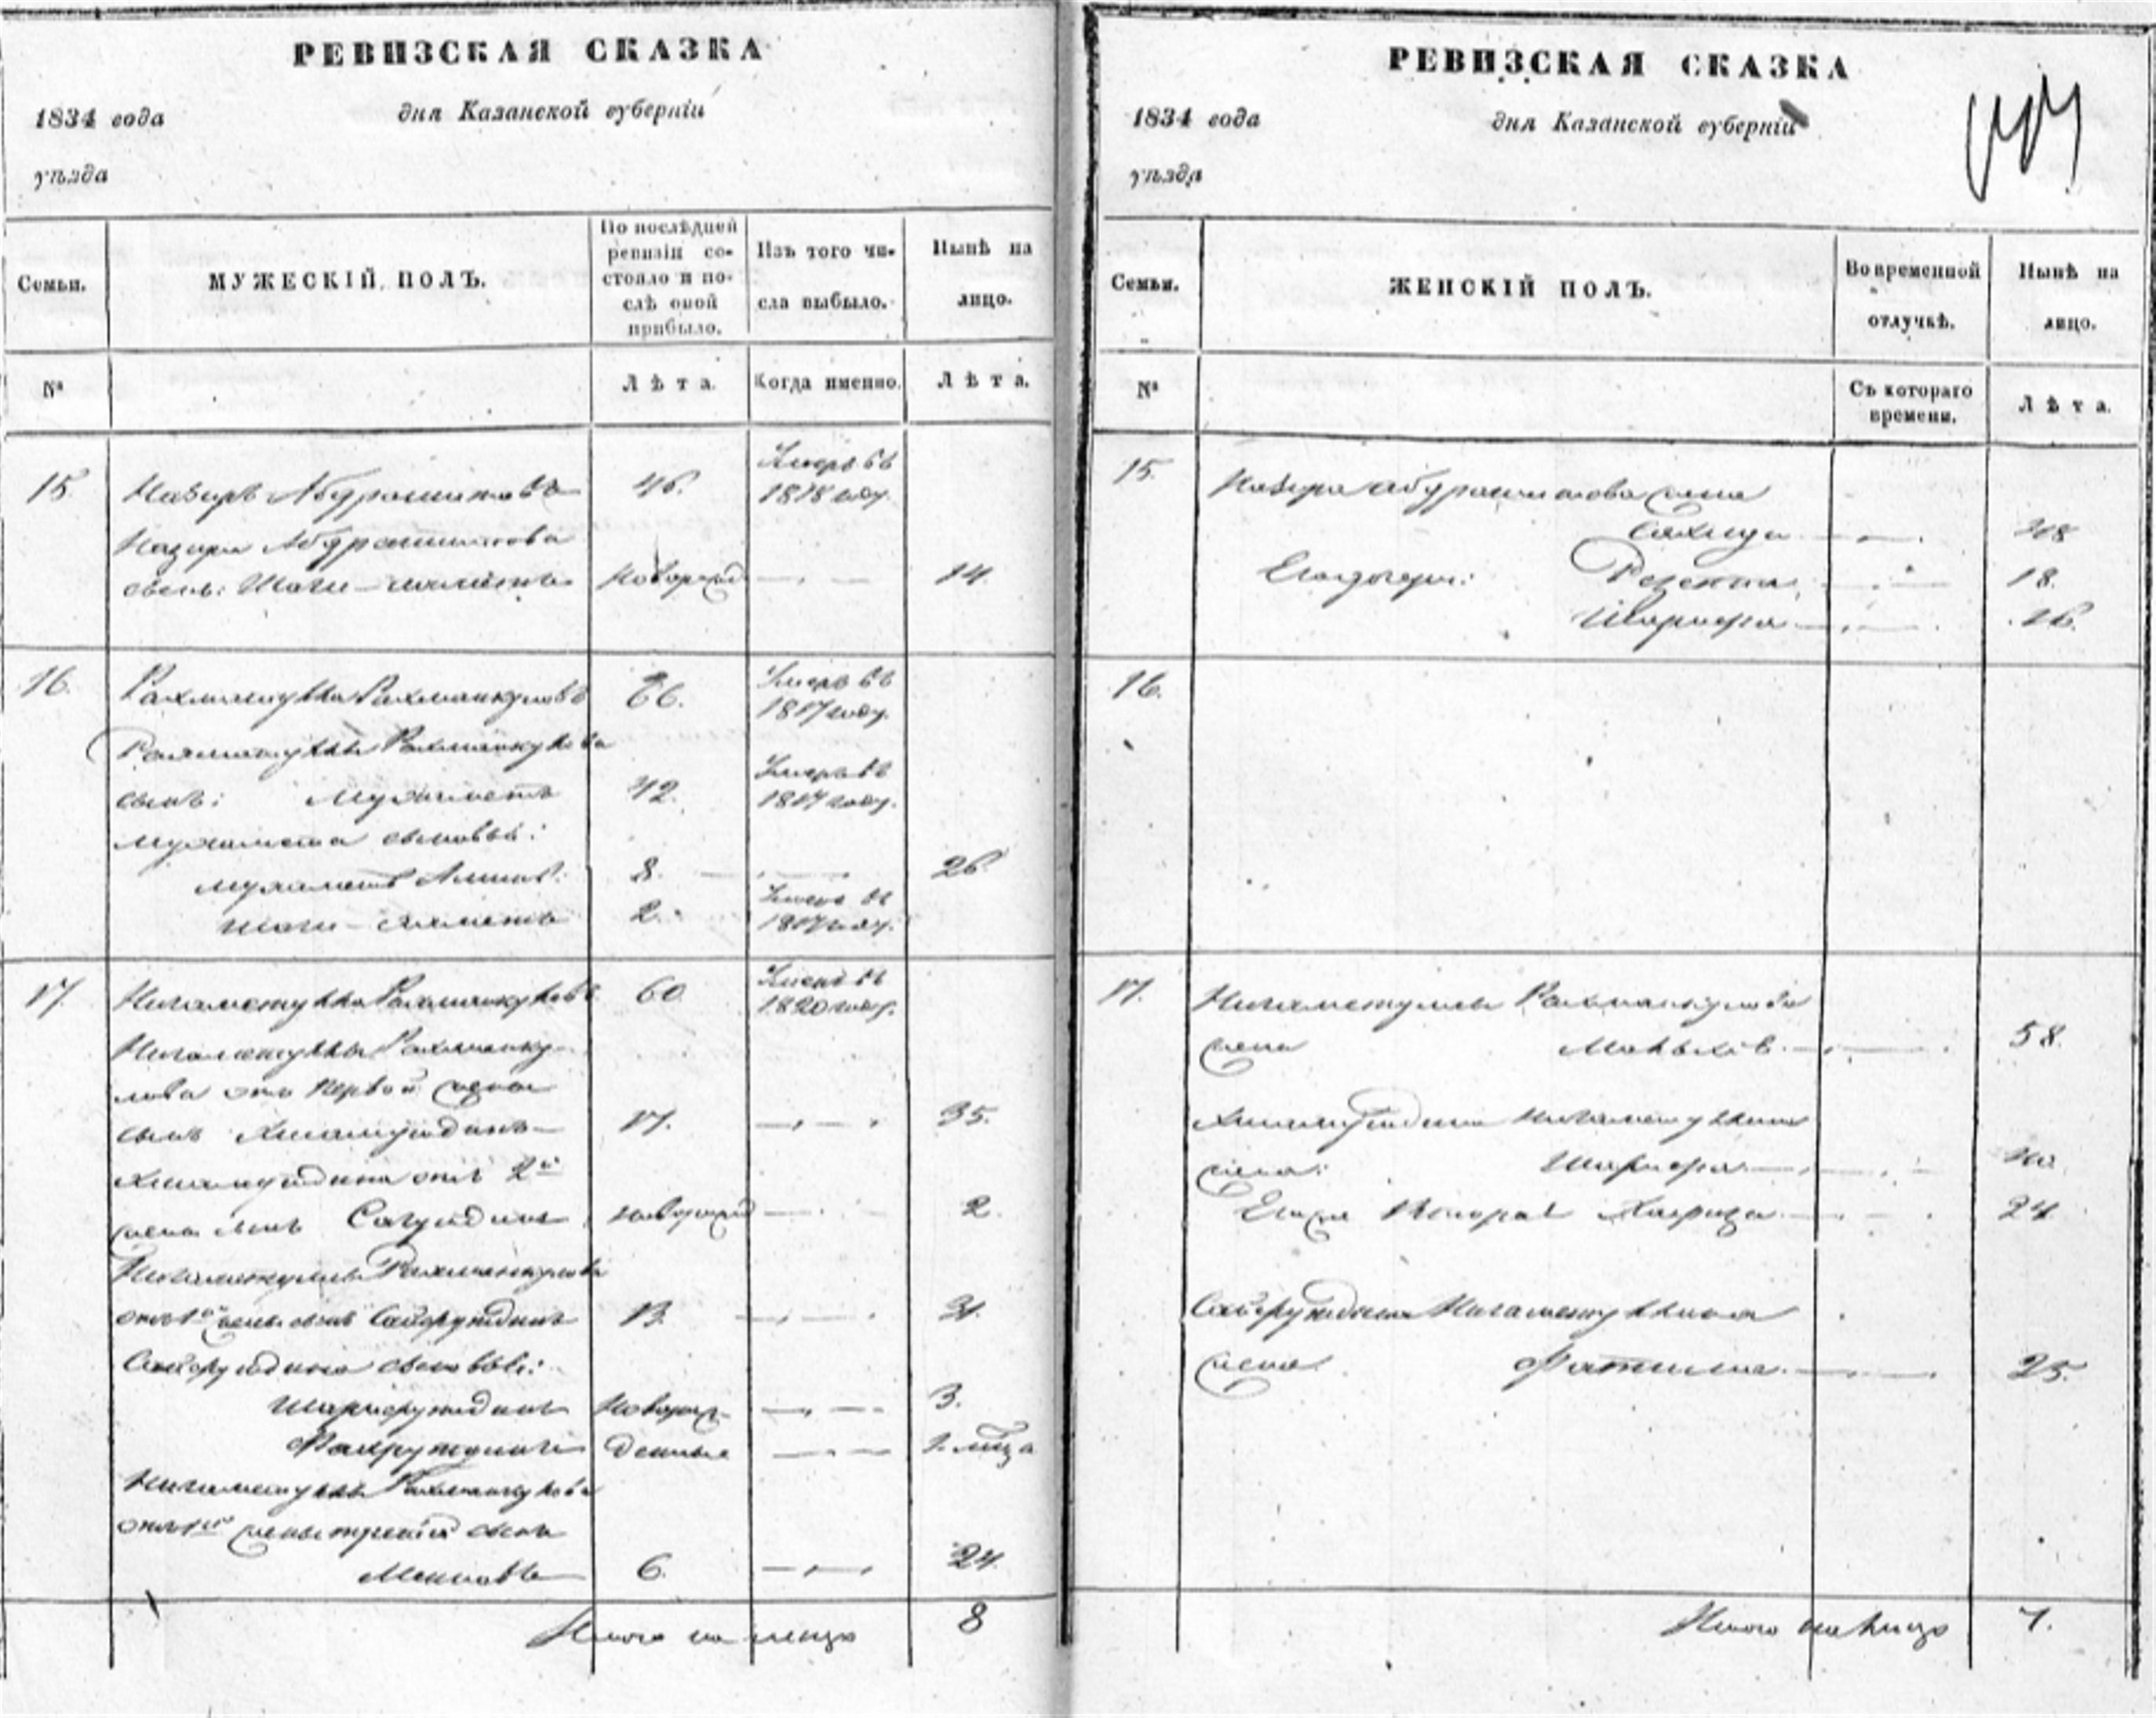 РЕВИЗСКАЯ СКАЗКА
1834 года дня Казанской губерніи
уѣзда
Семьи. МУЖЕСКІЙ ПОЛЪ. По послѣдней ревизіи состояло и послѣ оной прибыло. Изъ того числа выбыло. Нынѣ на лицо.
№ Лѣта. Когда именно. Лѣта.
15. Назиръ Абдрашитовъ 46. Умеръ въ 1818 году.
Назира Абдрашитова
сынъ: Шаги-ахметъ новорожд 14.
16. Рахметулла Рахманкуловъ 66. Умеръ въ 1817 году.
Рахметуллы Рахманкулова
сынъ: Мухаметъ 42. Умеръ въ 1817 году.
Мухамета сыновья:
Мухаметъ Аминъ: 8. 26.
Шаги-ахметъ 2. Умеръ въ 1817 году.
17. Нигаметулла Рахманкуловъ 60 Умеръ въ 1820 году.
Нигаметуллы Рахманку-
лова отъ первой жены
сынъ 17. 35.
отъ 2й
жены сынъ новорожд 2.
Нигаметуллы Рахманкулова
отъ 1й жены сынъ Сайфутдинъ 13. 31.
Сайфутдина сыновья:
Шарафутдинъ новорож- 3.
Фахрутдинъ денные 1. мѣца
Нигаметуллы Рахманкулова
отъ 1й жены третій сынъ
6. 24.
Итого на лицо 8
РЕВИЗСКАЯ СКАЗКА
1834 года дня Казанской губерніи
уѣзда
Семьи. ЖЕНСКІЙ ПОЛЪ. Во временной отлучкѣ. Нынѣ на лицо.
№ Съ котораго времени. Лѣта.
15. Назира Абдрашитова жена
Его дочери: 18.
Шарифа 16.
16.
17. Нигаметуллы Рахманкулова
жена 58.
Нигаметуллина
жена: Шарифа
Его же вторая 24.
Сайфутдина Нигаметуллина
жена Фатима 25.
Итого на лицо 7.